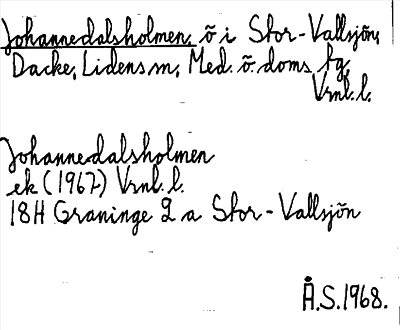 Johannedalsholmen, ö i Stor-Vallsjön,
Dacke, Lidens sn, Med. ö. doms. tg,
Vrnl. l.
Johannedalsholmen
ek (1967) Vrnl. l.
18H Graninge 2 a Stor-Vallsjön
Å.S. 1968.